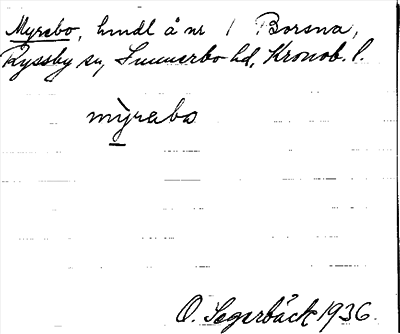 Myrabo, hmdl å nr 1 Borsna,
Ryssby sn, Sunnerbo hd, Kronob. l.
mỳrabo
O. Segerbäck 1936.